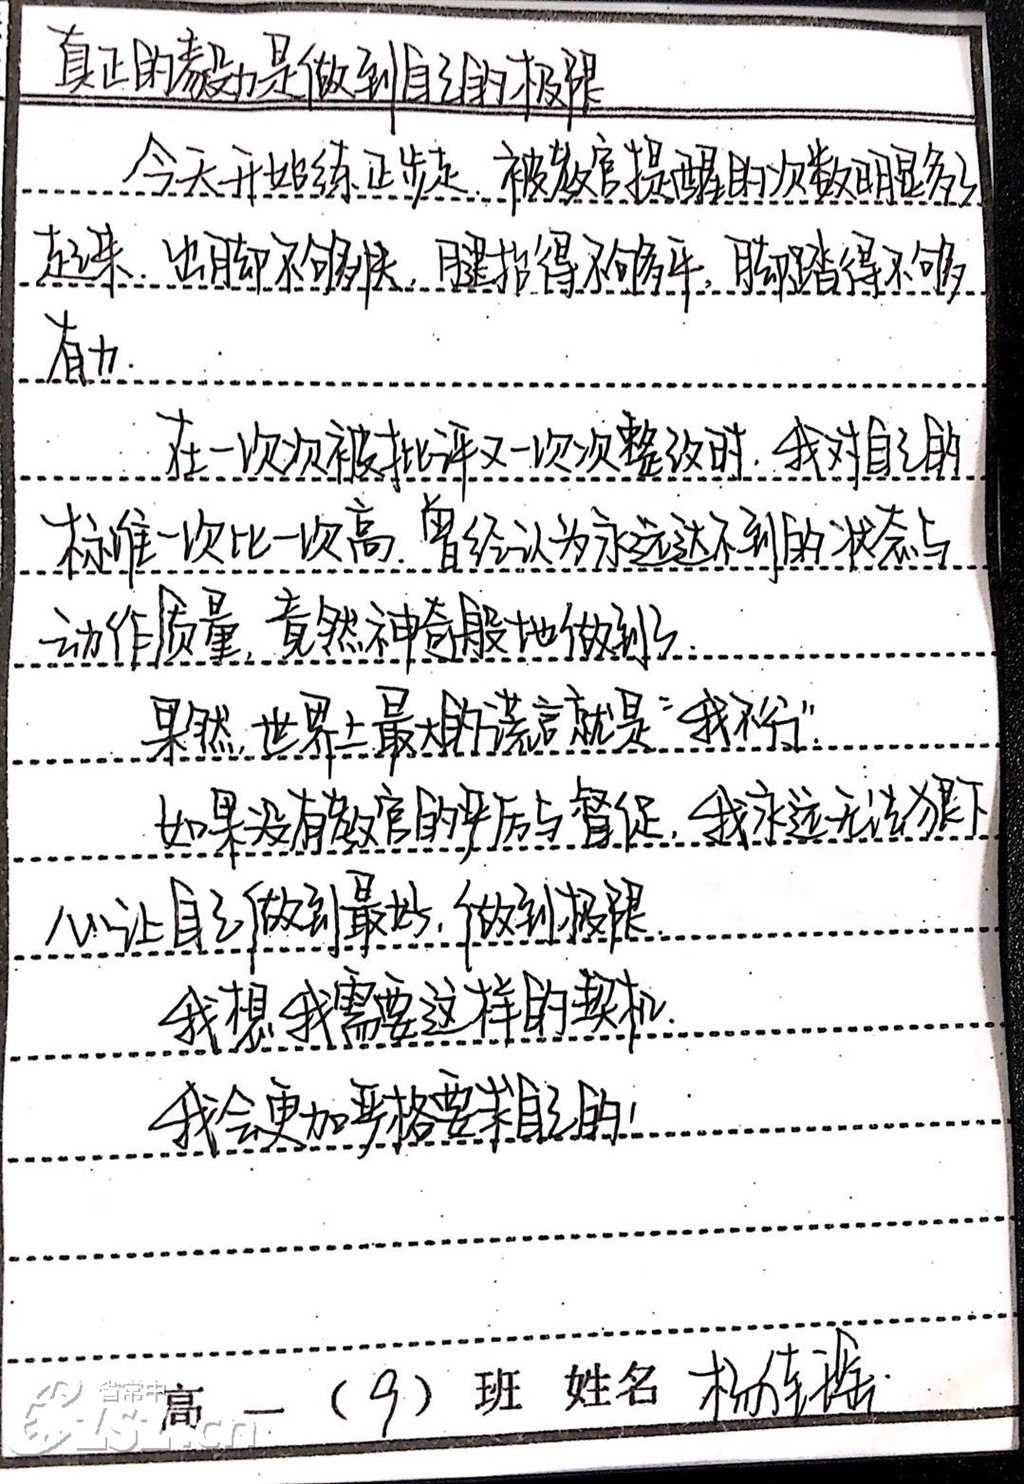 真正的毅力是做到自己的极限
今天开始练正步走，被教官提醒的次数明显多了
起来．出脚不够快，腿抬得不够平，脚踏得不够
有力．
在一次次被批评又一次次整改时，我对自己的
标准一次比一次高．曾经认为永远达不到的状态与
动作质量，竟然神奇般地做到了．
果然，世界上最大的谎言就是“我不行”．
如果没有教官的严厉与督促，我永远无法狠下
心让自己做到最好，做到极限．
我想，我需要这样的契机．
我会更加严格要求自己的！
高一（9）班 姓名 杨佳瑶
省常中